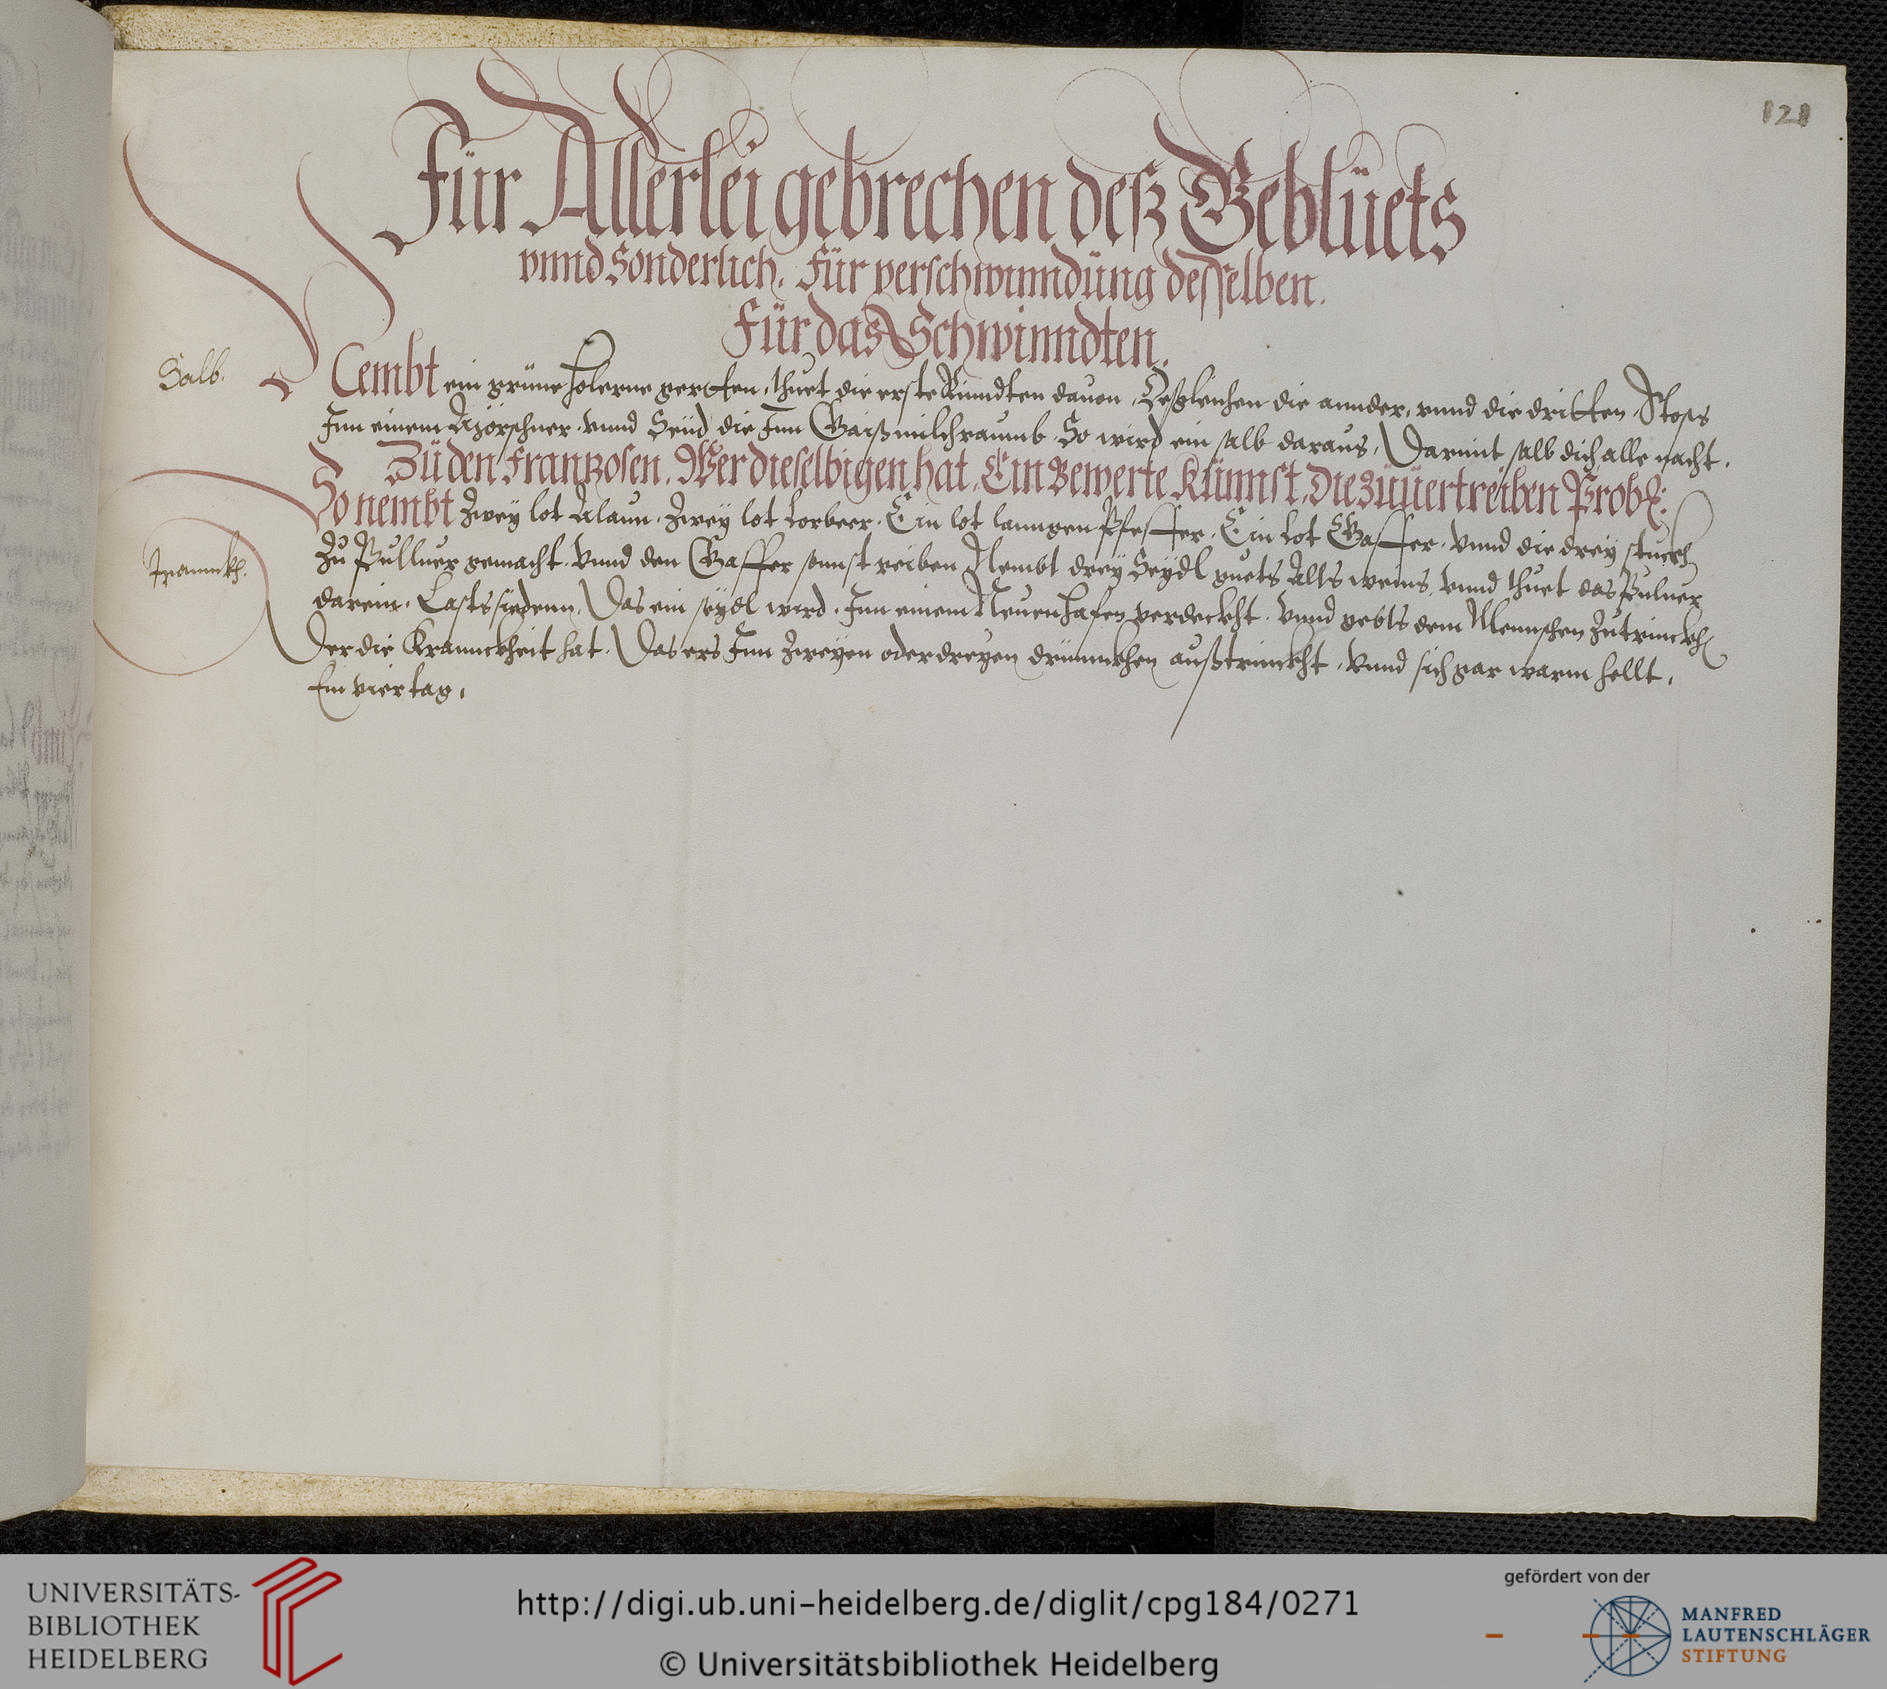 121
Für Allerlei gebrechen desz Geblüets
vnnd Sonderlich. Für verschwinndüng desselben.
Für das Schwinndten.
Salb.
Nembt ein grüne holerne gertten, thuet die erste Rinndten dauon, Desgleichen die annder, vnnd die dritten Stoss
Inn einem Mörschner. Vnnd Seüd die Inn Gaißmilchraumb. So wird ein salb daraus, Darmit salb dich alle nacht.
Zü den Franzosen. Wer dieselbigen hat. Ein Bewerte Künnst, die züuertreiben Prob:
So nembt Zwey lot Alaun. Zwey lot Lorbeer. Ein lot lanngen Pfeffer. Ein lot Gaffer. Vnnd die drey stuckh
Tranckh.
Zu Pulluer gemacht. Vnnd den Gaffer sonnst reiben Nembt drey Seydl guets Alts weins, Vnnd thuet das Puluer
darein. Lasts siedenn, Das ein seydl wird. Inn einem Neuen hafen verdeckht. Vnnd gebts dem Mennschen Zutrinckh
Der die Kranckheit hat. Das ers Inn Zweyen oder dreyen drünnckhen außtrinckht. Vnnd sich gar warm hellt,
Ein vier tag,
UNIVERSITÄTS-
BIBLIOTHEK
HEIDELBERG
http://digi.ub.uni-heidelberg.de/diglit/cpg184/0271
© Universitätsbibliothek Heidelberg
gefördert von der
MANFRED
LAUTENSCHLÄGER
STIFTUNG